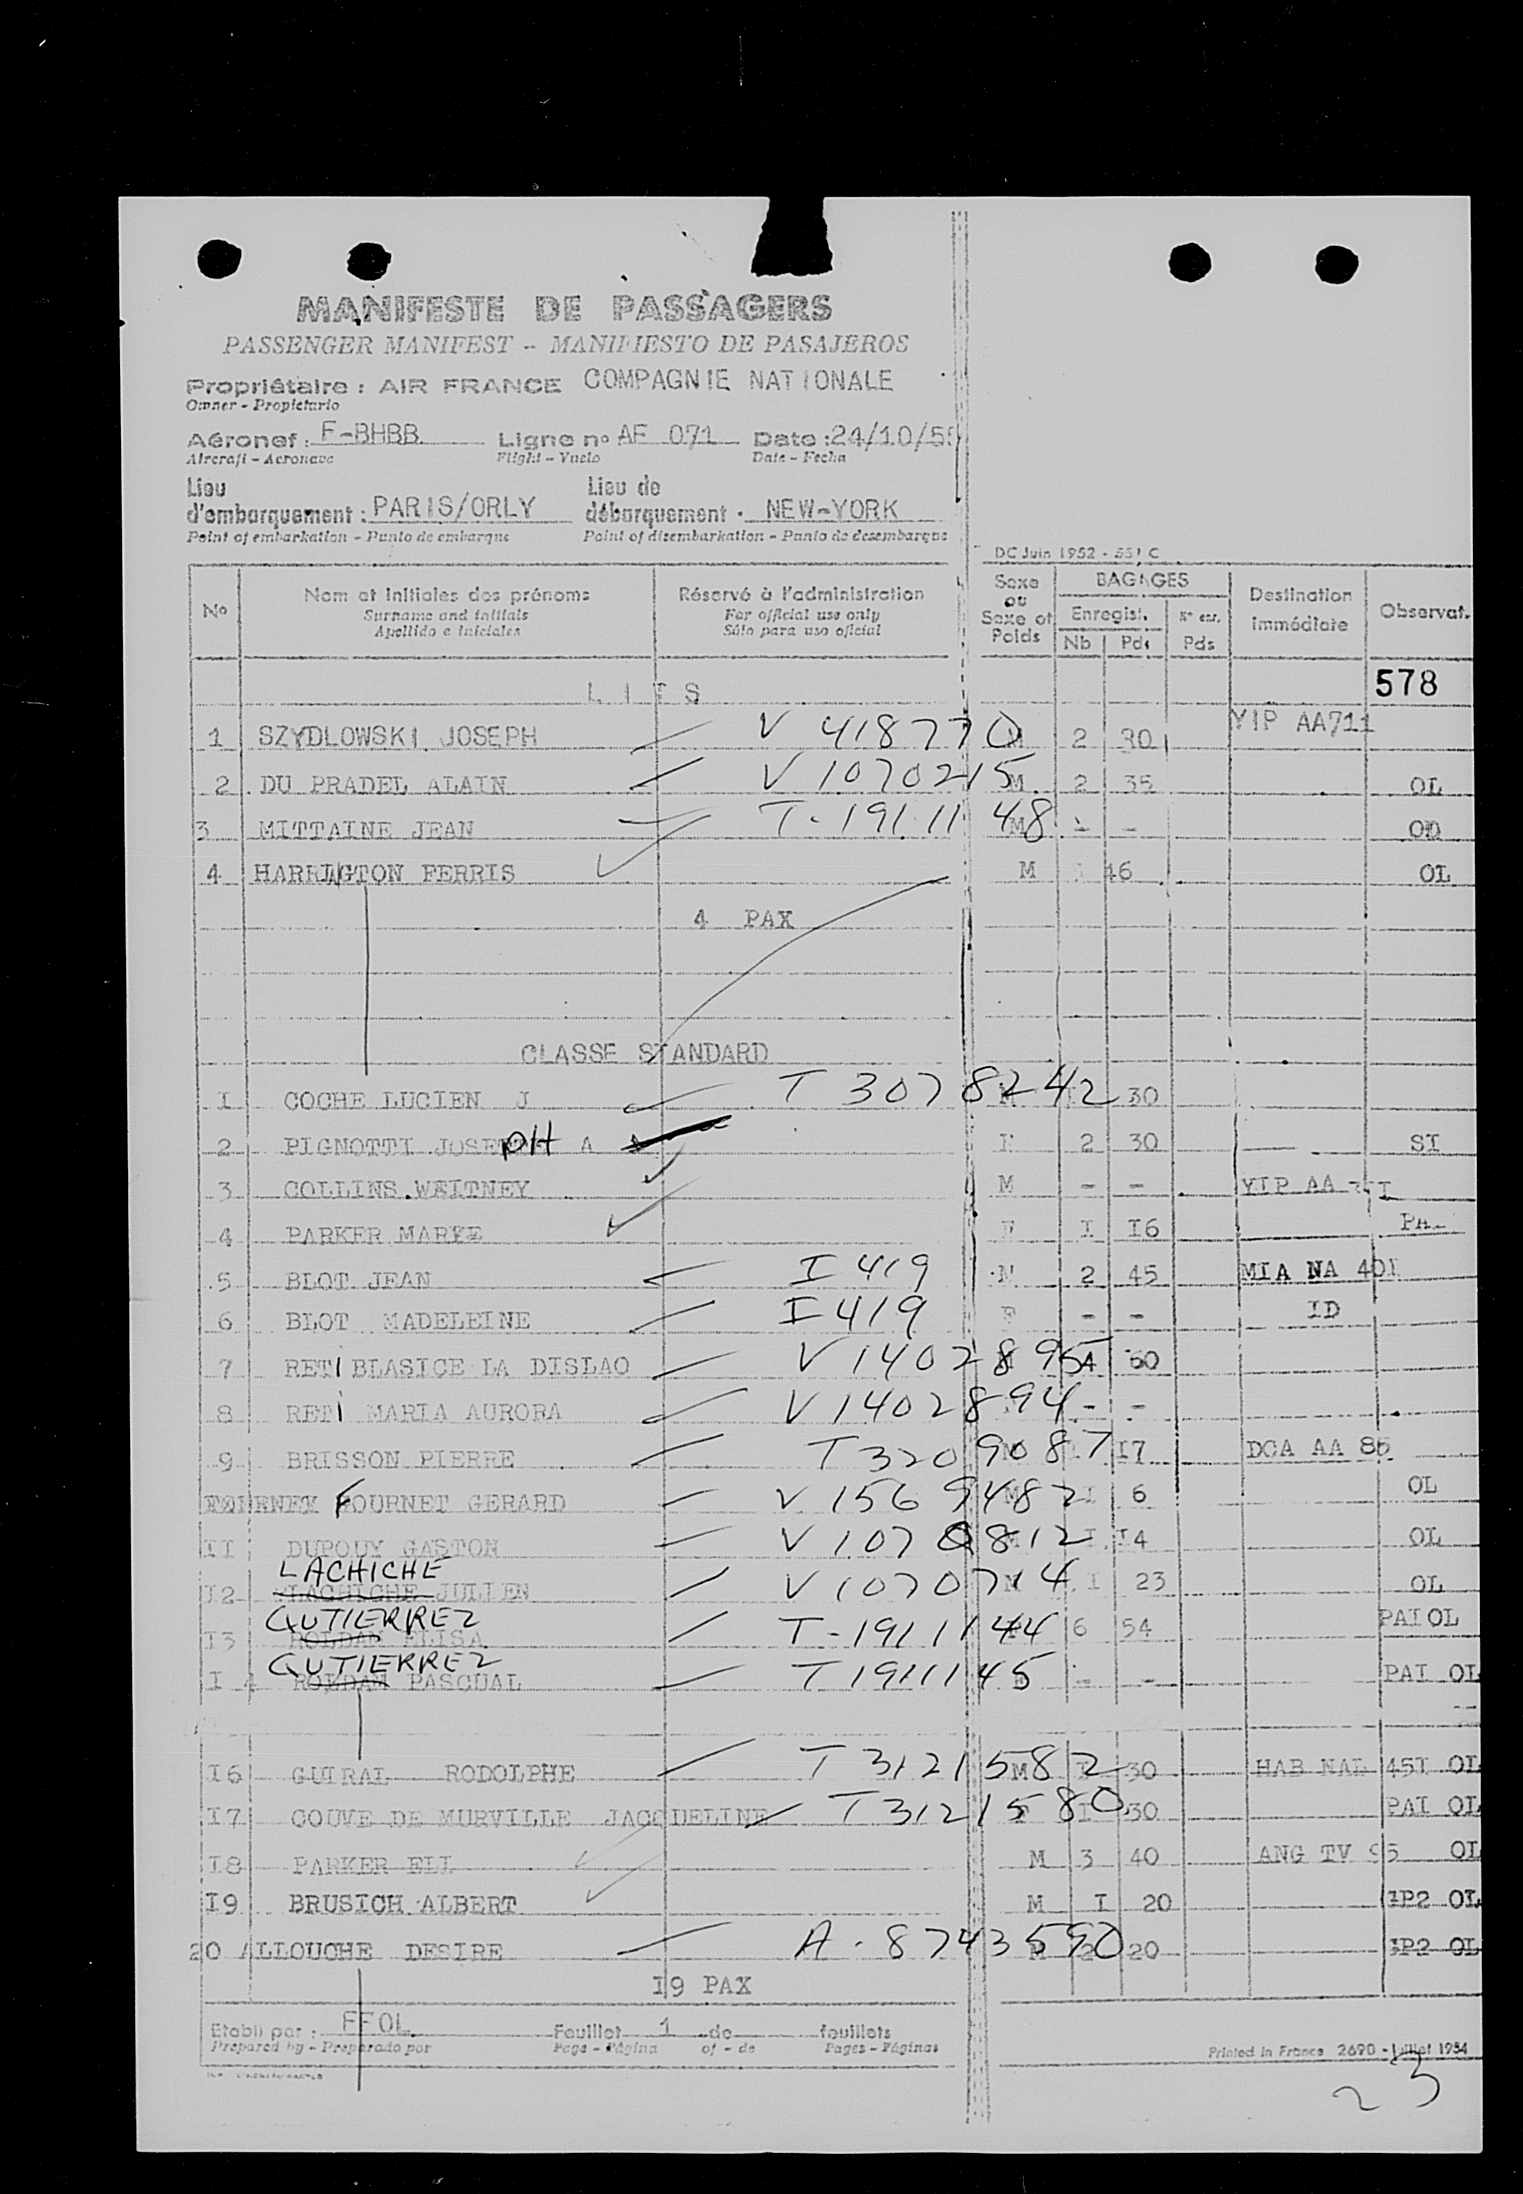 MANIFESTE DE PASSAGERS
PASSENGER MANIFEST - MANIFIESTO DE PASAJEROS
Propriétaire : AIR FRANCE COMPAGNIE NATIONALE
Owner - Propietario
Aéronef : F-BHBB Ligne no AF 071 Date : 24/10/55
Aircraft - Aeronave Flight - Vuelo Date - Fecha
Lieu d'embarquement : PARIS/ORLY Lieu de débarquement · NEW-YORK
Point of embarkation - Punto de embarque Point of disembarkation - Punto de desembarque
DC Juin 1952 - 551 C
No Nom et initiales des prénoms Réservé à l'administration Sexe ou Sexe et Poids BAGAGES Destination immédiate Observat.
Surname and initials For official use only Enregist. Nr enr.
Apellido e iniciales Sólo para uso oficial Nb Pds Pds
L I T S 578
1 SZYDLOWSKI JOSEPH V 418770 M 2 30 YIP AA711
2 DU PRADEL ALAIN V 1070215 M 2 35 OL
3 MITTAINE JEAN T-1911148 M - - OD
4 HARRINGTON FERRIS M 46 OL
4 PAX
CLASSE STANDARD
I COCHE LUCIEN J T 3078242 M 30
2 PIGNOTTI JOSEPH A 2 30 SI
3 COLLINS WHITNEY M - - YIP AA
4 PARKER MARIE F I I6
5 BLOT JEAN I 419 M 2 45 MIA NA 40I
6 BLOT MADELEINE I 419 F - - ID
7 RETI BLASICE LA DISLAO V 1402895 4 50
8 RETI MARIA AURORA V 1402894 - -
9 BRISSON PIERRE T 3209087 I7 DCA AA 85
FOURNET GERARD V 1569482 M I 6 OL
II DUPOUY GASTON V 1070812 I I4 OL
I2 LACHICHE JULIEN V 1070714 I 23 OL
LACHICHE
I3 ROLDAN ELISA T-1911144 6 54 PAI OL
GUTIERREZ
I 4 ROLDAN PASCUAL T 1911145 - - PAI OL
GUTIERREZ
I6 GUIRAL RODOLPHE T 3121582 M 30 HAB NAL 45I OL
I7 COUVE DE MURVILLE JACQUELINE T 3121580 I 30 PAI OL
I8 PARKER ELI M 3 40 ANG TV 95 OL
I9 BRUSICH ALBERT M I 20 IP2 OL
20 ALLOUCHE DESIRE A-8743590 M 2 20 IP2 OL
I9 PAX
Etabli par : FFOL Feuillet 1 de feuillets
Prepared by - Preparado por Page - Página of - de Pages - Páginas
Printed in France 2690 - Juillet 1954
23